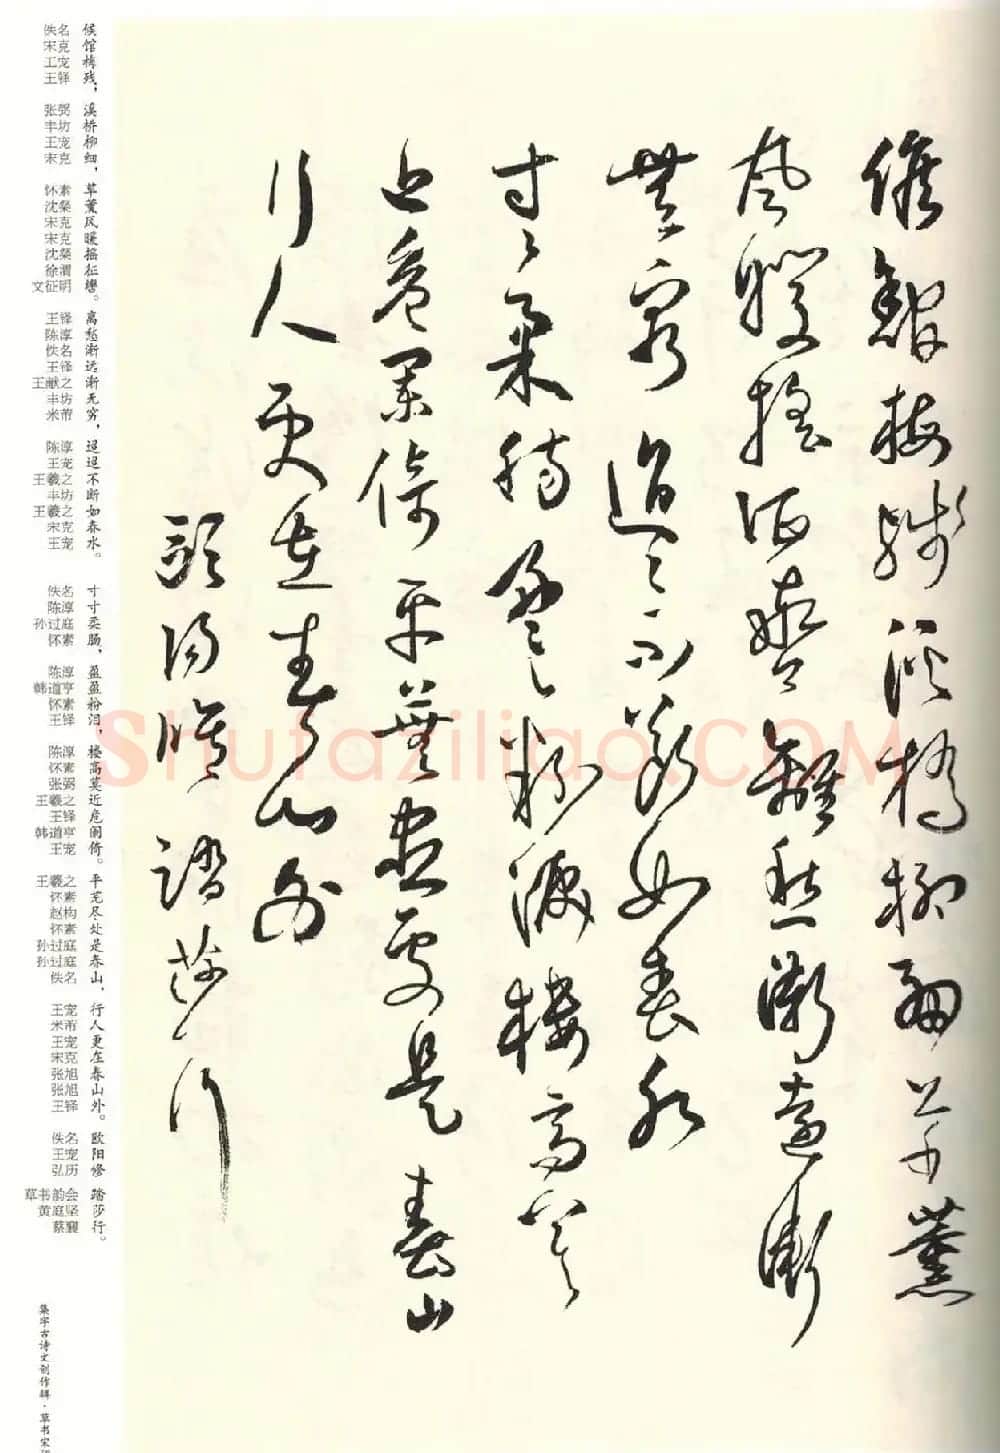 候館梅殘溪橋柳細草薰
風暖搖征轡離愁漸遠漸
無窮迢〻不斷如春水
寸〻柔腸盈〻粉淚樓高莫
近危闌倚平蕪盡處是春山
行人更在春山外
歐陽修踏莎行
候馆梅残，溪桥柳细，草薰风暖摇征辔。离愁渐远渐无穷，迢迢不断如春水。寸寸柔肠，盈盈粉泪，楼高莫近危阑倚。平芜尽处是春山，行人更在春山外。欧阳修踏莎行。
佚名 宋克 王宠 王铎 张弼 丰坊 王宠 宋克 怀素 沈粲 宋克 宋克 沈粲 徐渭 文征明 王铎 陈淳 佚名 王铎 王献之 丰坊 米芾 陈淳 王宠 王羲之 丰坊 王羲之 宋克 王宠 佚名 陈淳 孙过庭 怀素 陈淳 韩道亨 怀素 王铎 陈淳 怀素 张弼 王羲之 王铎 韩道亨 王宠 王羲之 怀素 赵构 怀素 孙过庭 孙过庭 佚名 王宠 米芾 王宠 宋克 张旭 张旭 王铎 佚名 王宠 弘历 草书韵会 黄庭坚 蔡襄
集字古诗文创作辑·草书宋
Shufaziliao.COM